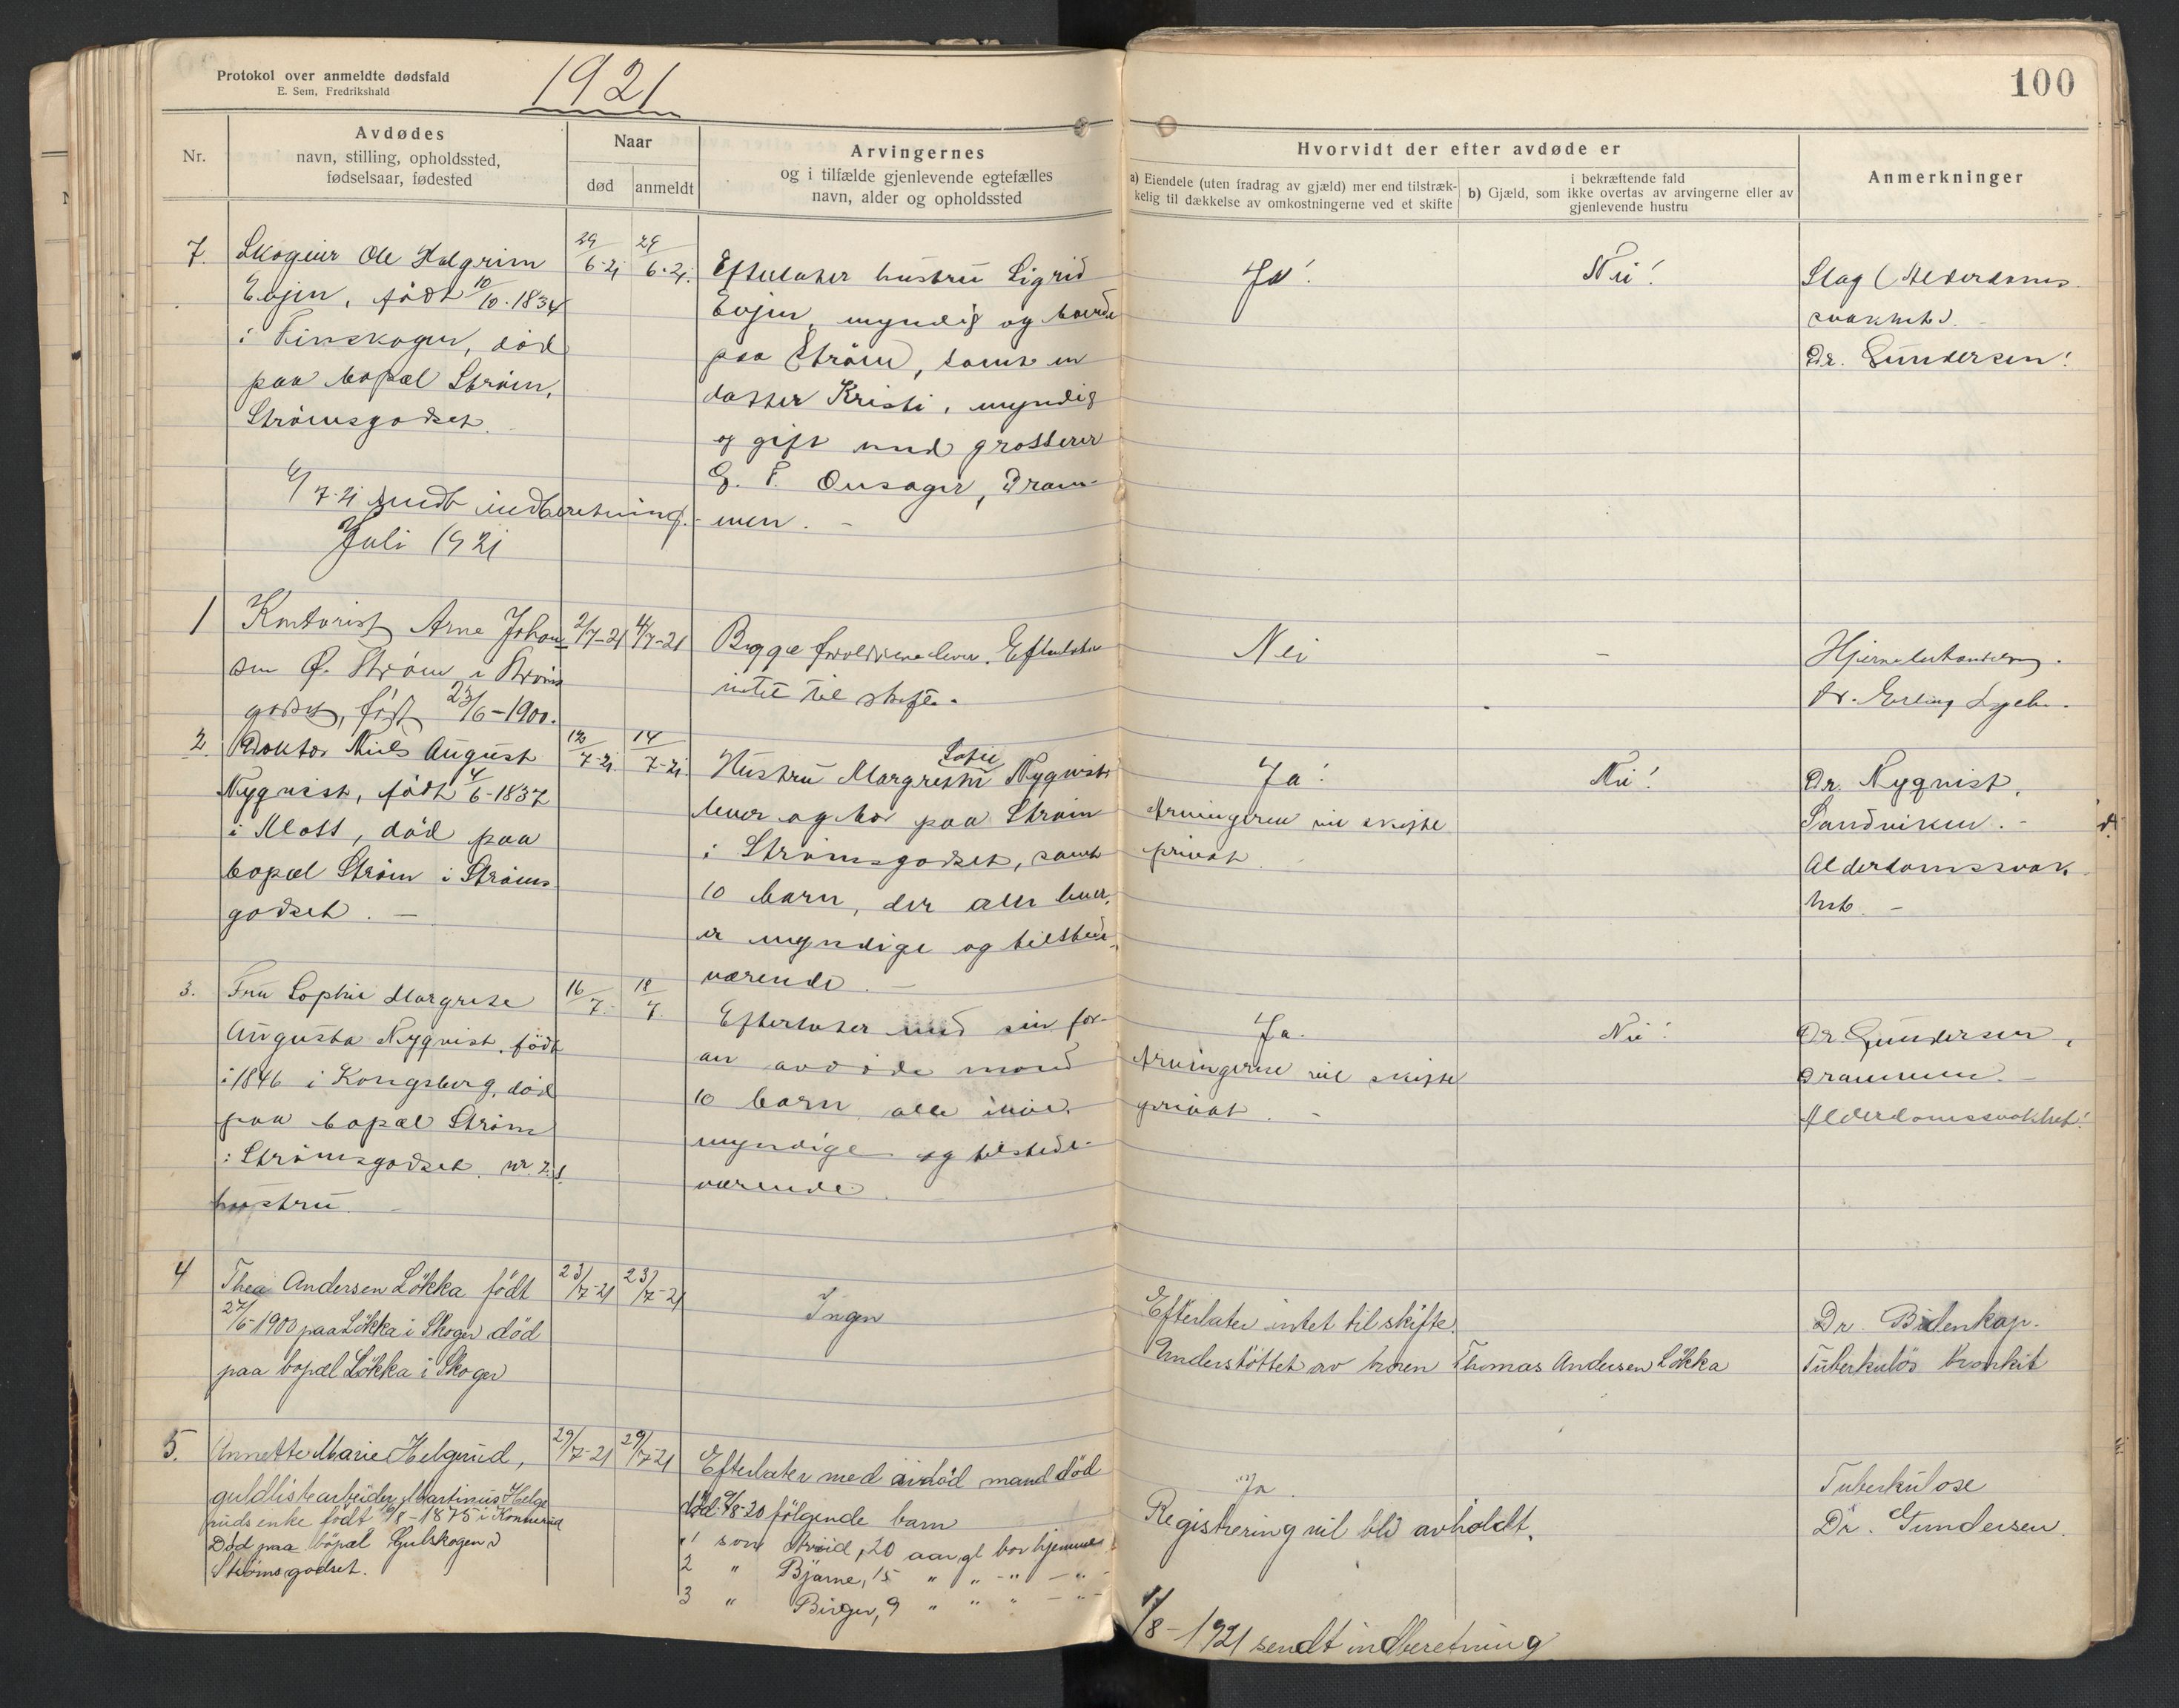 Protokol over anmeldte dødsfald
E. Sem, Fredrikshald
1921
100
Nr.
Avdødes
navn, stilling, opholdssted,
fødselsaar, fødested
Naar
død
anmeldt
Arvingernes
og i tilfælde gjenlevende egtefælles
navn, alder og opholdssted
Hvorvidt der efter avdøde er
a) Eiendele (uten fradrag av gjæld) mer end tilstræk-
kelig til dækkelse av omkostningerne ved et skifte
i bekræftende fald
b) Gjæld, som ikke overtas av arvingerne eller av
gjenlevende hustru
Anmerkninger
7.
Skogeier Ole Halgrim
Evjen, født 10/10-1834
i Finskogen, død
paa bopæl Strøm,
Strømsgodset.
29/6-21
29/6-21.
Efterlater hustru Sigrid
Evjen, myndig og boende
paa Strøm, samt en
datter Kristi, myndig
og gift med grosserer
G. P. Onsager, Dram-
men. -
Ja!
Nei!
Slag (Alderdoms
svakhet). -
Dr. Gundersen!
/7-21 sendt indberetning.
Juli 1921
1
Kontorist Arne Johan-
sen Ø. Strøm i Strøms
godset, født 23/6-1900.
2/7-21
4/7-21
Begge forældrene lever. Efterlater
intet til skifte.
Nei
-
Dr. Erling
2.
Doktor Niels August
Nyqvist, født 4/6-1837
i Moss, død paa
bopæl Strøm i Strøms
godset. -
13/7-21.
14/7-21
Hustru Margrethe Sofie Nyqvist
lever og bor paa Strøm
i Strømsgodset, samt
10 barn, der alle lever,
er myndige og tilstede-
værende. -
Ja!
Arvingerne vil skifte
privat.
Nei!
Dr. Nyqvist,
Sandviken. -
Alderdomssvak
het. -
3.
Fru Sophie Margrete
Augusta Nyqvist, født
i 1846 i Kongsberg, død
paa bopæl Strøm
i Strømsgodset. nr. 2's
hustru. -
16/7.
18/7.
Efterlater med sin for-
an avdøde mand
10 barn alle
myndige og tilstede-
værende.
Ja.
Arvingerne vil skifte
privat. -
Nei!
Dr. Gundersen,
Drammen. -
Alderdomssvakhet!
4
Thea Andersen Lökka födt
27/6-1900 paa Lökka i Skoger död
paa bopæl Lökka i Skoger
23/7-21
23/7-21
Ingen
Efterlater intet til skifte.
Understöttet av broren Thomas Andersen Lökka
Dr. Bidenkap.
Tuberkulös bronkit
5.
Annette Marie Helgerud,
guldlistearbeider Martinius Helge
ruds enke födt /8-1875 i Konnerud
Död paa bopæl Gulskogen i
Strömsgodset.
29/7-21
29/7-21
Efterlater med avdöd mand död
död /8-20 fölgende barn
1 sön Arvid, 20 aar gl bor hjemme
2 " Bjarne, 15 " " -"- -"-
3 " Birger, 9 " " " -"-
Ja.
Registrering vil bli avholdt.
Tuberkulose
Dr. Gundersen.
/8-1921 sendt indberetning